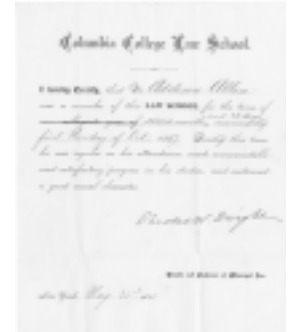 Columbia College Law School.
I hereby Certify, that Addison Allen
was a member of the LAW SCHOOL, for the term of
months, commencing
first Monday of Oct. 1867. During this time
he was regular in his attendance, made commendable
and satisfactory progress in his studies and sustained
a good moral character.
Theodore W. Dwight
New York, May